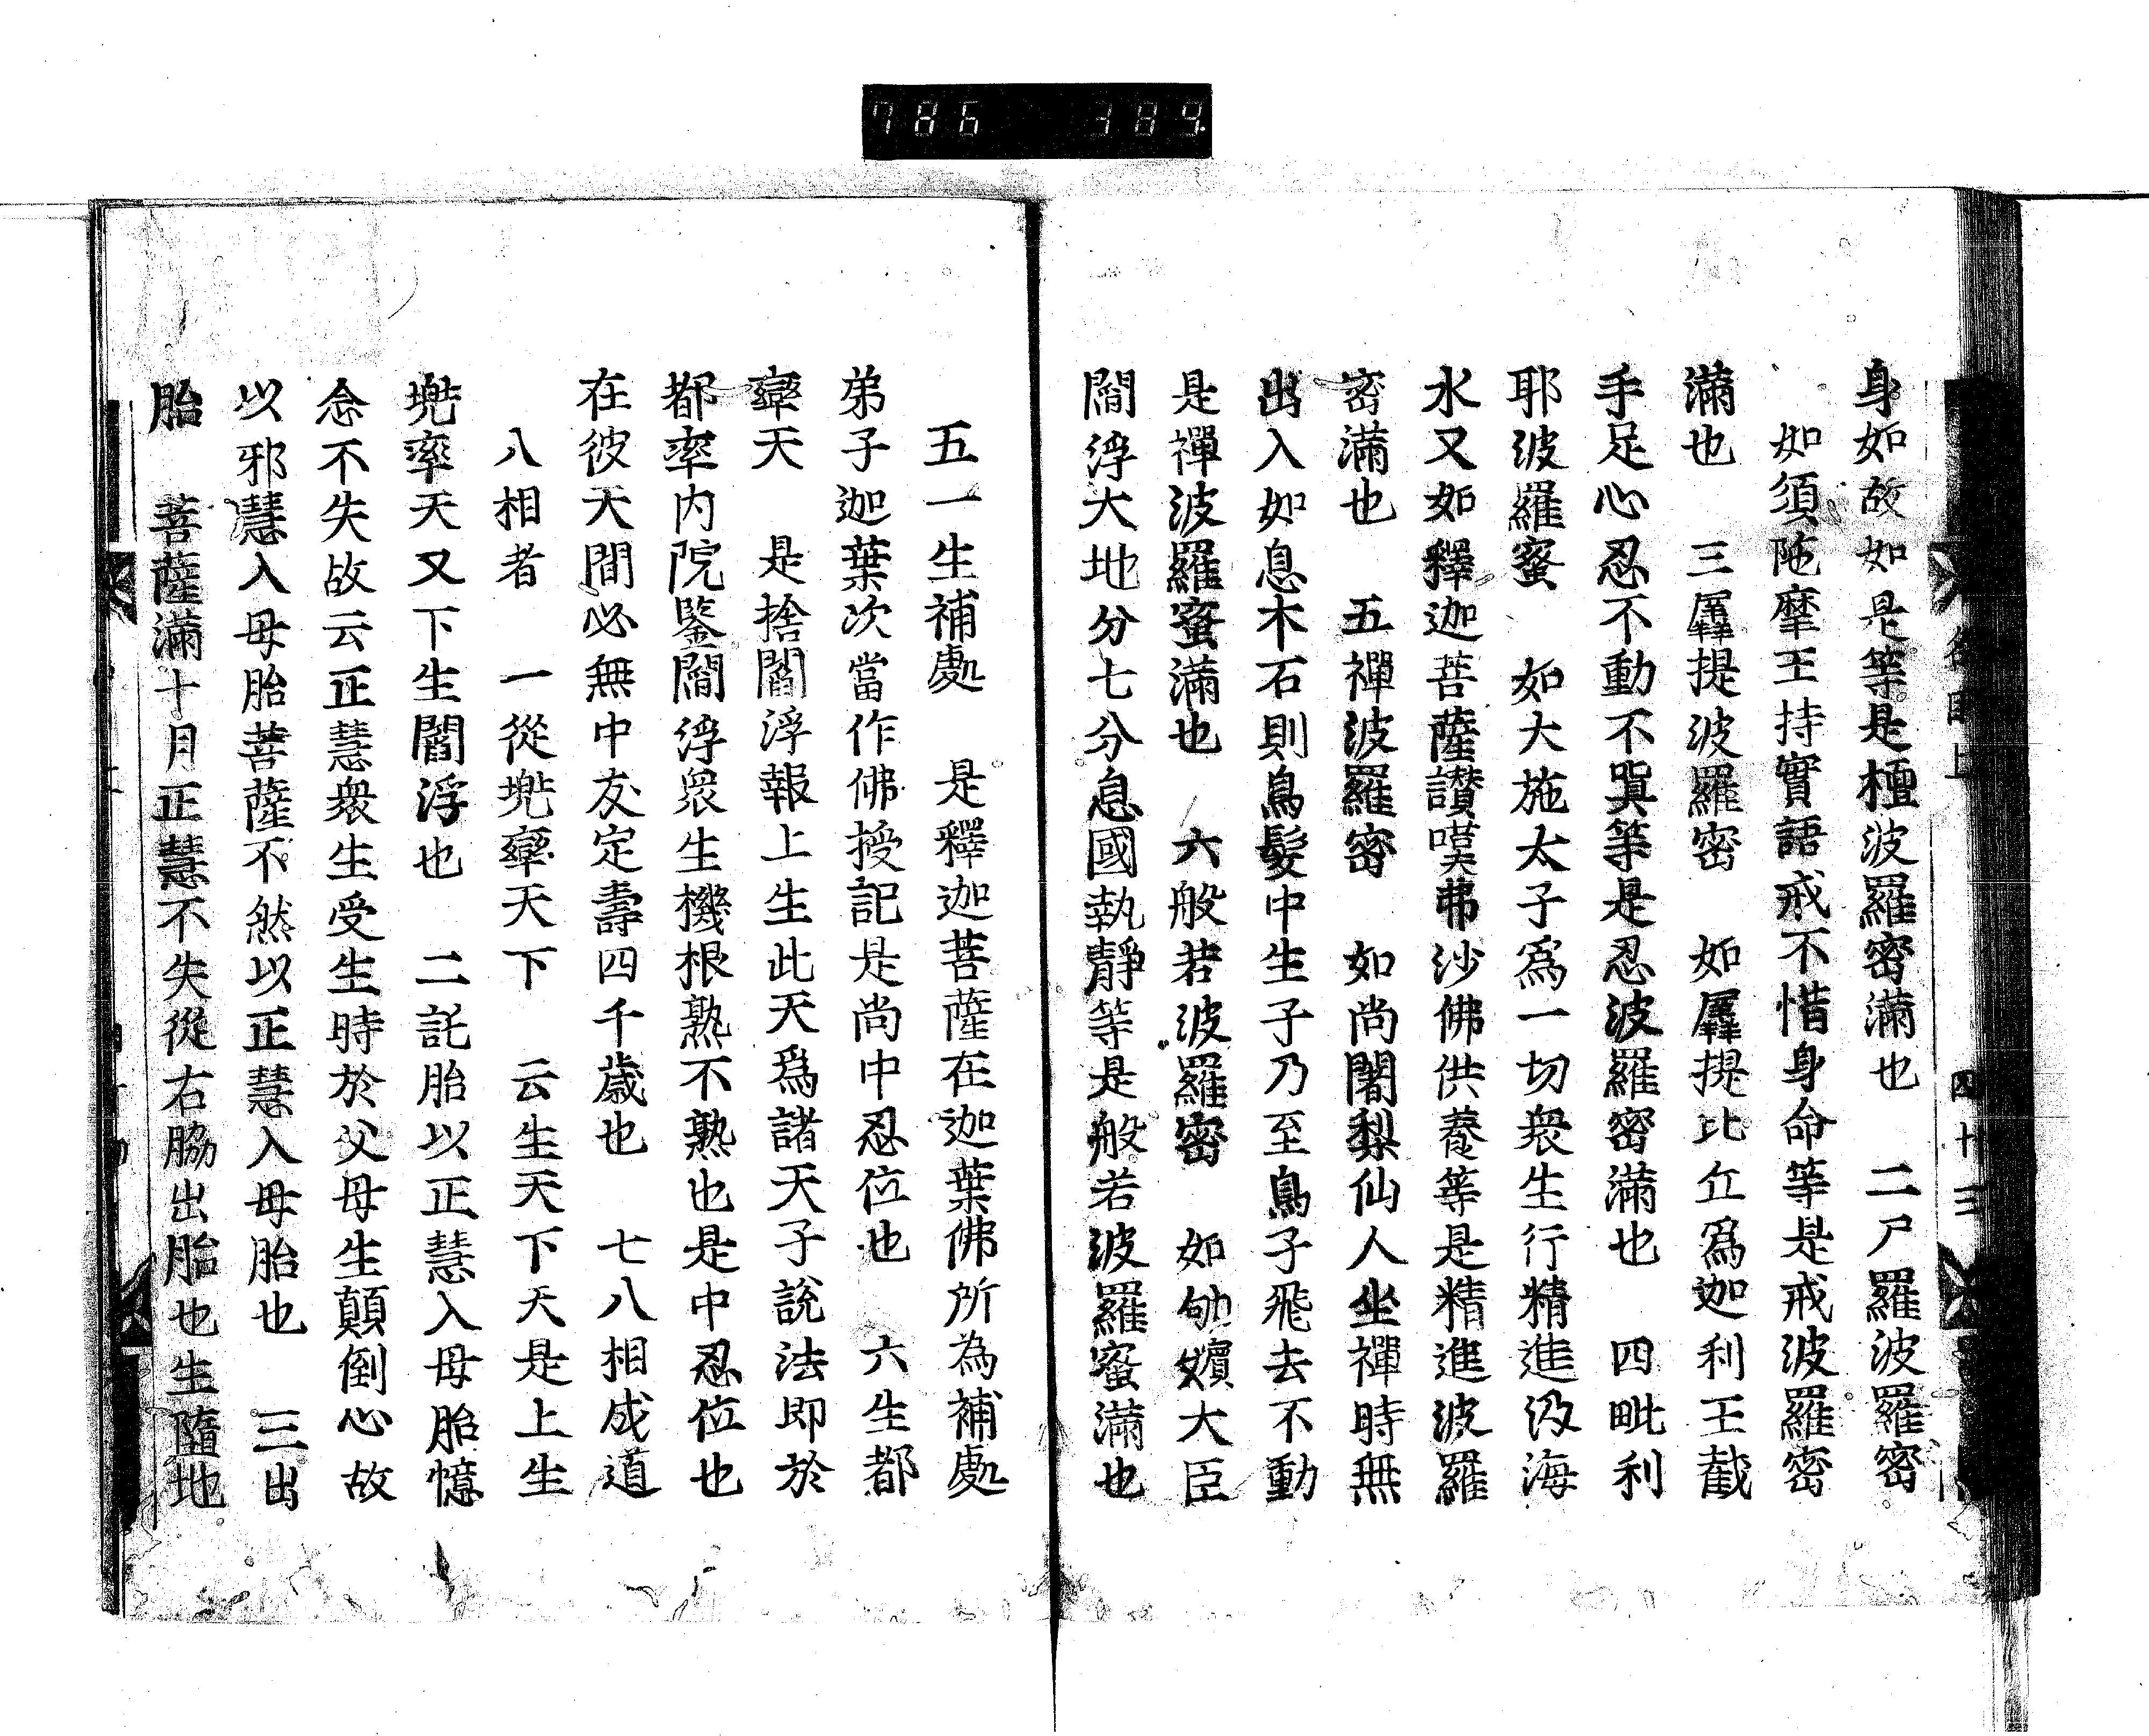 786 389
身如故如是等是檀波羅密滿也 二尸羅波羅密
如須陁摩王持實語戒不惜身命等是戒波羅密
滿也 三羼提波羅密 如羼提比丘爲迦利王截
手足心忍不動不嗔等是忍波羅密滿也 四毗利
耶波羅蜜 如大施太子爲一切衆生行精進汲海
水又如釋迦菩薩讃嘆弗沙佛供養等是精進波羅
密滿也 五禪波羅密 如尚闍梨仙人坐禪時無
出入如息木石則鳥髮中生子乃至鳥子飛去不動
是禪波羅蜜滿也 六般若波羅密 如劬嬪大臣
閻浮大地分七分息國執靜等是般若波羅蜜滿也
四十三
五一生補處 是釋迦菩薩在迦葉佛所為補處
弟子迦葉次當作佛授記是尚中忍位也 六生都
率天 是捨閻浮報上生此天爲諸天子說法即於
都率内院鑒閻浮衆生機根熟不熟也是中忍位也
在彼天間必無中夭定壽四千歲也 七八相成道
八相者 一從兜率天下 云生天下天是上生
兜率天又下生閻浮也 二託胎以正慧入母胎憶
念不失故云正慧衆生受生時於父母生顛倒心故
以邪慧入母胎菩薩不然以正慧入母胎也 三出
胎 菩薩滿十月正慧不失從右脇出胎也生隨地